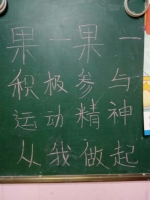 果一果一
积极参与
运动精神
从我做起